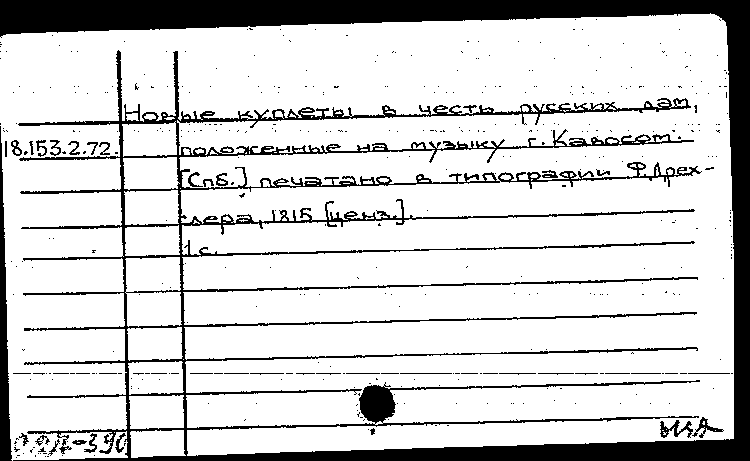 Новые куплеты в честь русских дам,
18.153.2.72. положенные на музыку г. Кавосом.
[Спб.] печатано в типографии Ф. Дрех-
слера, 1815 [ценз.].
1 с.